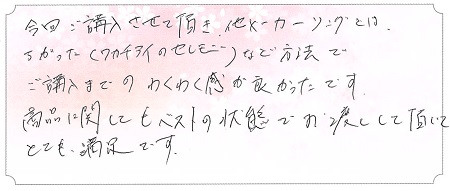 今回ご購入させて頂き、他メーカーリングとは、
ちがった(ワカチアイのセレモニー)など方法で
ご購入までのわくわく感が良かったです。
商品に関してもベストの状態でお渡しして頂いて
とても、満足です。